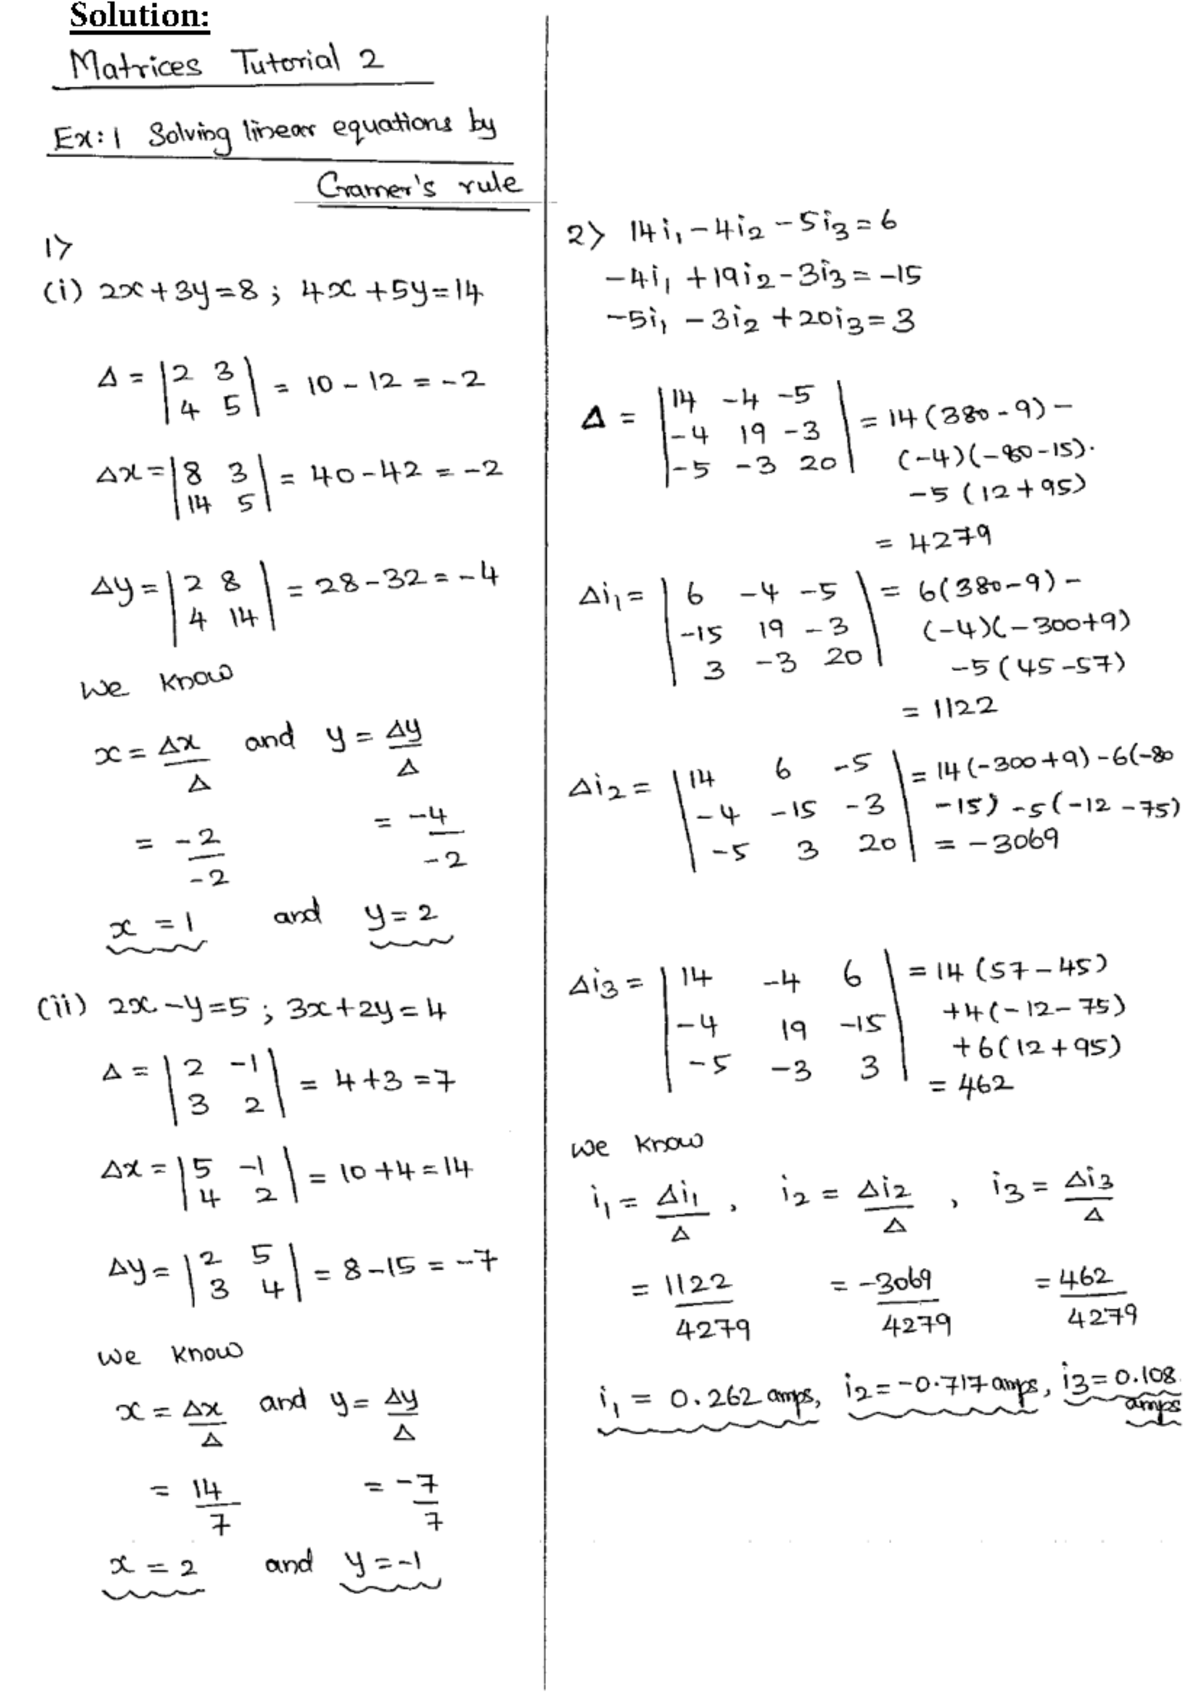 Solution:
Matrices Tutorial 2
Ex:1 Solving linear equations by
Cramer's rule
1>
(i) 2x+3y=8 ; 4x+5y=14
Δ = |2 3|
|4 5| = 10-12 = -2
Δx = |8 3|
|14 5| = 40-42 = -2
Δy = |2 8|
|4 14| = 28-32 = -4
We know
x = Δx/Δ and y = Δy/Δ
= -2/-2 = -4/-2
x = 1 and y = 2
(ii) 2x-y=5 ; 3x+2y=4
Δ = |2 -1|
|3 2| = 4+3 = 7
Δx = |5 -1|
|4 2| = 10+4 = 14
Δy = |2 5|
|3 4| = 8-15 = -7
We know
x = Δx/Δ and y = Δy/Δ
= 14/7 = -7/7
x = 2 and y = -1
2> 14i₁ - 4i₂ - 5i₃ = 6
-4i₁ + 19i₂ - 3i₃ = -15
-5i₁ - 3i₂ + 20i₃ = 3
Δ = |14 -4 -5| = 14(380-9) -
|-4 19 -3| (-4)(-80-15).
|-5 -3 20| -5(12+95)
= 4279
Δi₁ = |6 -4 -5| = 6(380-9) -
|-15 19 -3| (-4)(-300+9)
|3 -3 20| -5(45-57)
= 1122
Δi₂ = |14 6 -5| = 14(-300+9) -6(-80
|-4 -15 -3| -15) -5(-12-75)
|-5 3 20| = -3069
Δi₃ = |14 -4 6| = 14(57-45)
|-4 19 -15| +4(-12-75)
|-5 -3 3| +6(12+95)
= 462
We know
i₁ = Δi₁/Δ , i₂ = Δi₂/Δ , i₃ = Δi₃/Δ
= 1122/4279 = -3069/4279 = 462/4279
i₁ = 0.262 amps, i₂ = -0.717 amps, i₃ = 0.108
amps